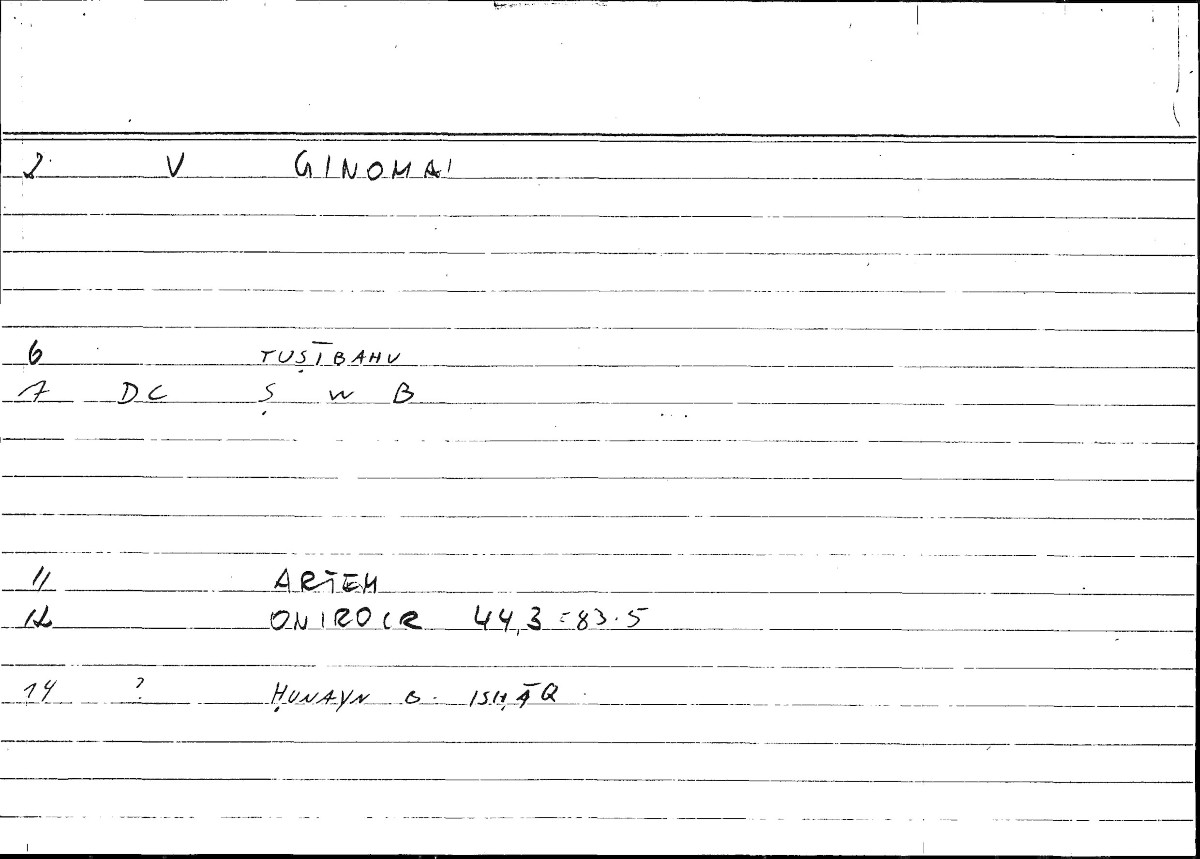 2 V GINOMAI
6 TUṢĪBAHU
7 DC Ṣ W B
11 ARTEM
12 ONIROCR 44,3=83.5
14 ? ḤUNAYN B. ISḤĀQ